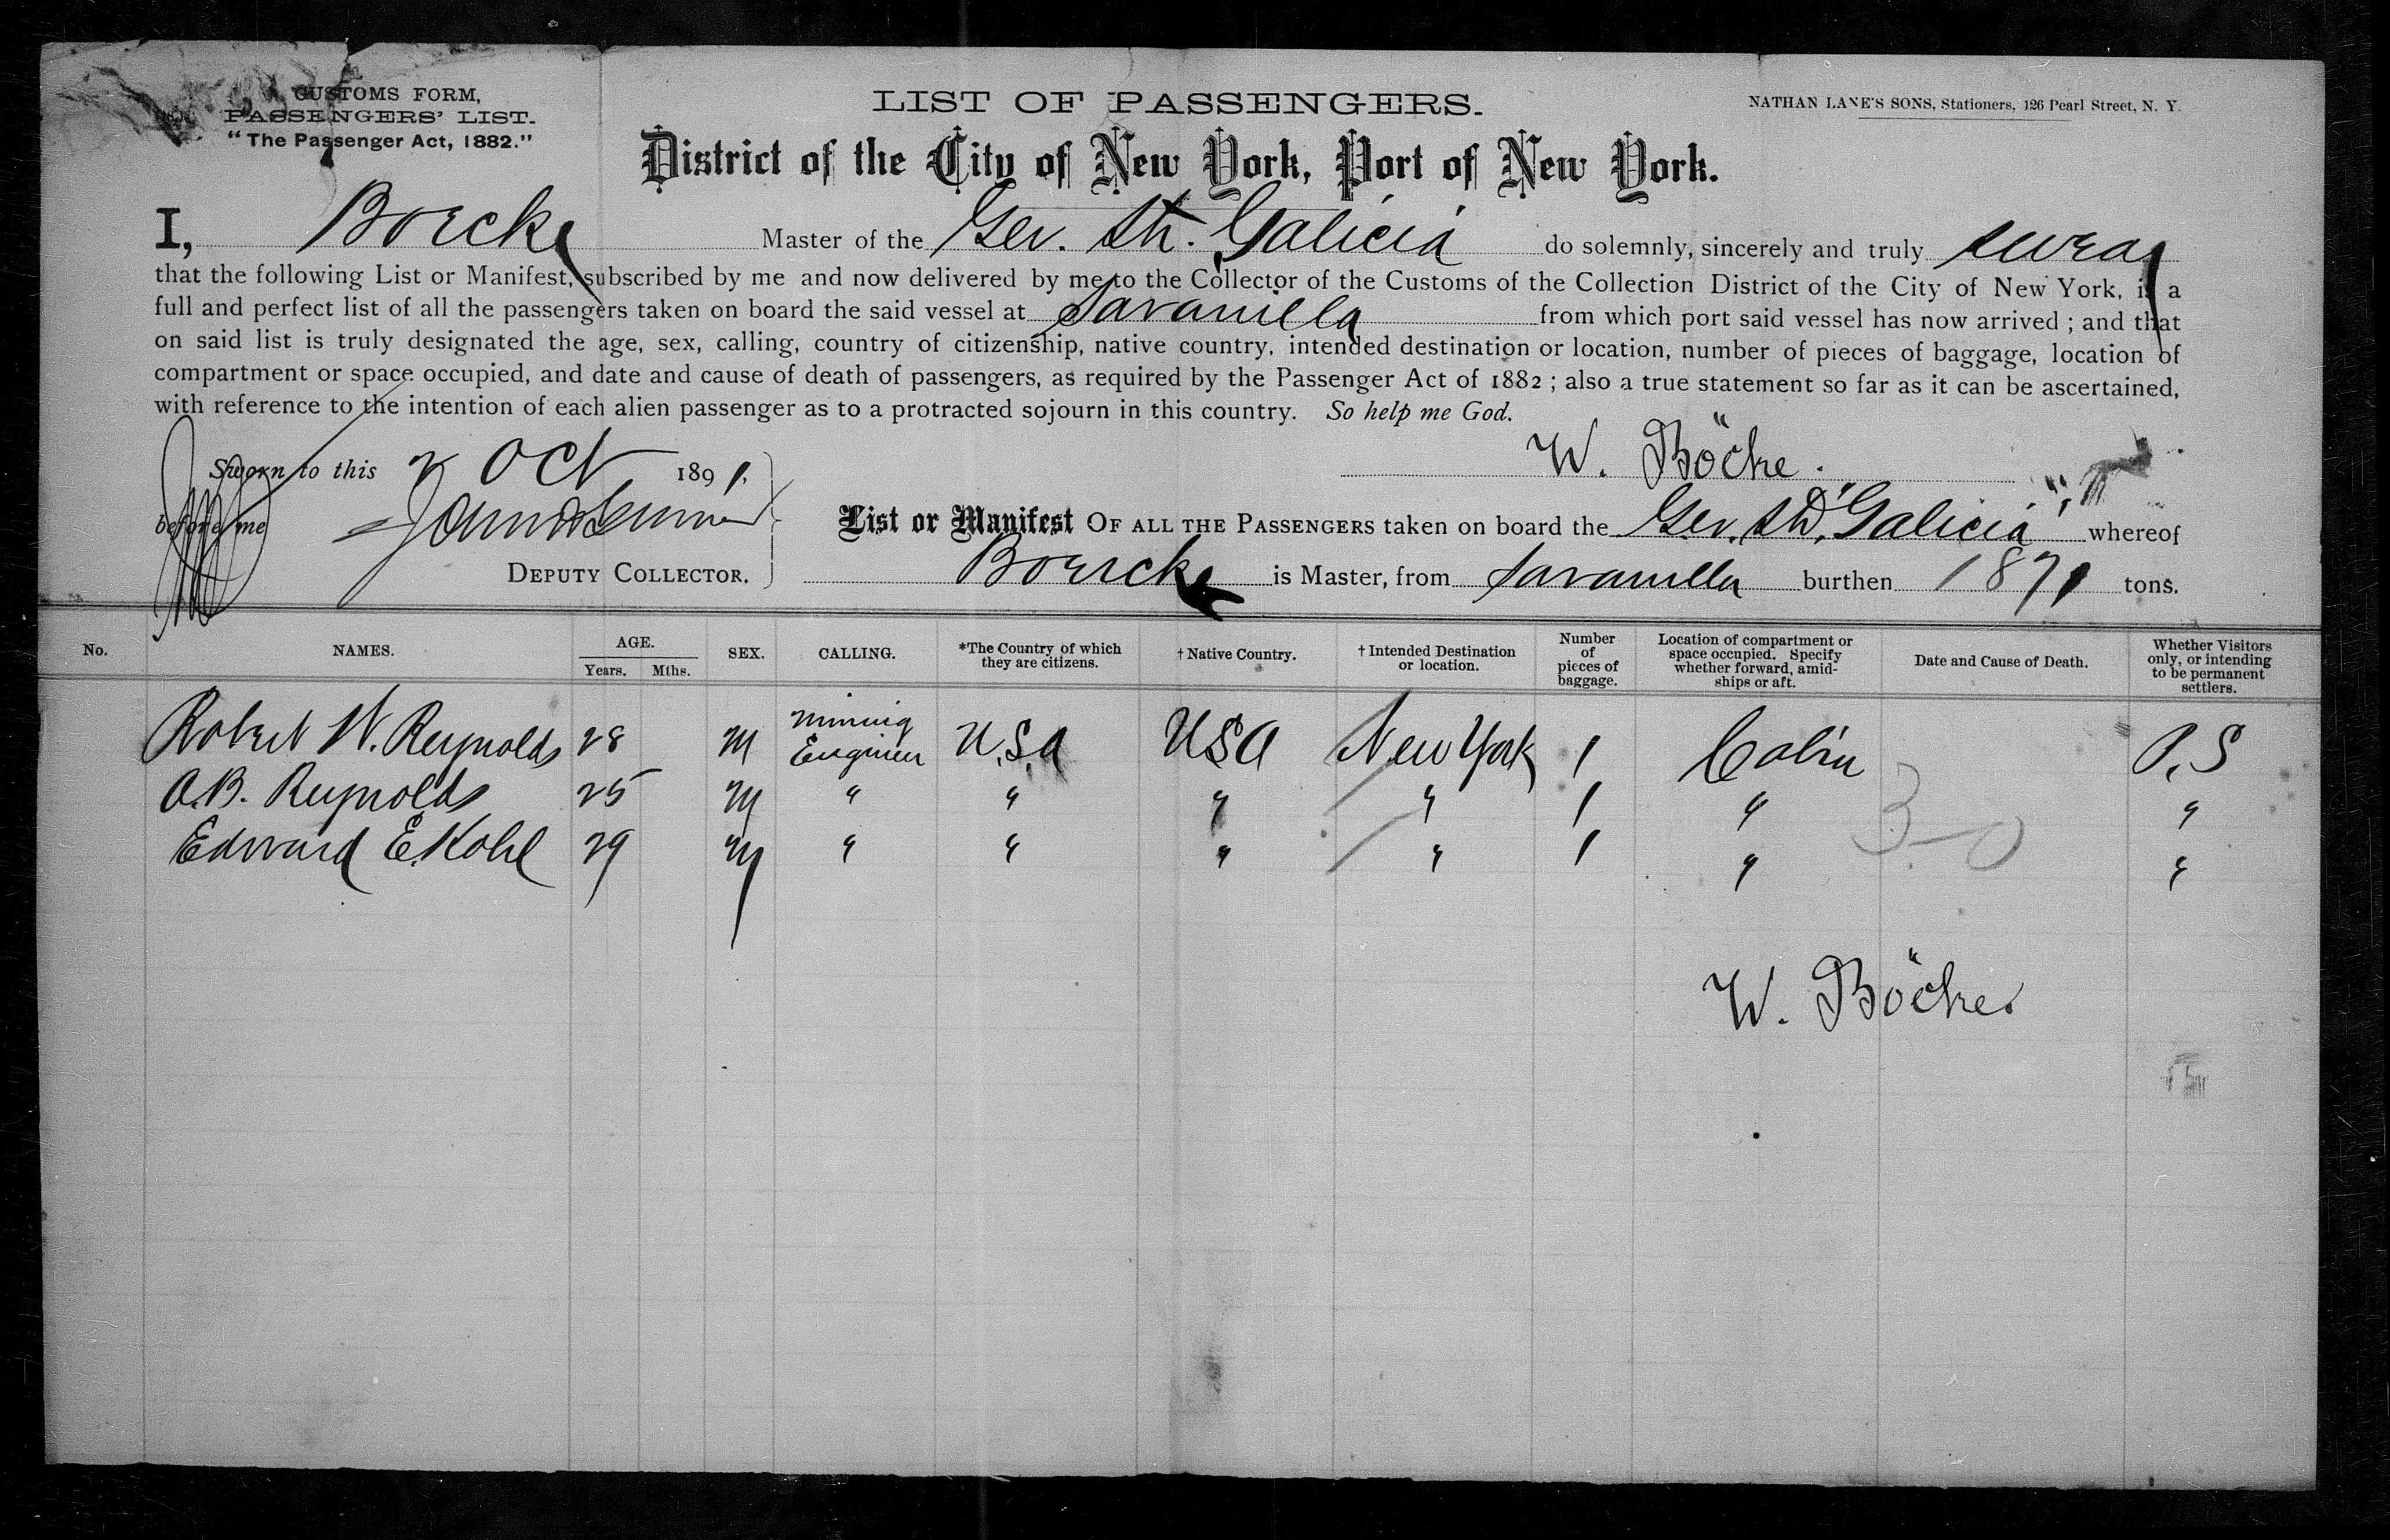 CUSTOMS FORM,
PASSENGERS' LIST.
"The Passenger Act, 1882."
LIST OF PASSENGERS.
NATHAN LANE'S SONS, Stationers, 126 Pearl Street, N. Y.
District of the City of New York, Port of New York.
I, Boecke Master of the Ger. Str. Galicia do solemnly, sincerely and truly swear
that the following List or Manifest, subscribed by me and now delivered by me to the Collector of the Customs of the Collection District of the City of New York, is a
full and perfect list of all the passengers taken on board the said vessel at Savanilla from which port said vessel has now arrived ; and that
on said list is truly designated the age, sex, calling, country of citizenship, native country, intended destination or location, number of pieces of baggage, location of
compartment or space occupied, and date and cause of death of passengers, as required by the Passenger Act of 1882 ; also a true statement so far as it can be ascertained,
with reference to the intention of each alien passenger as to a protracted sojourn in this country. So help me God.
Sworn to this 2 Oct 1891.
W. Böcke.
before me
DEPUTY COLLECTOR.
List or Manifest OF ALL THE PASSENGERS taken on board the Ger. Str. "Galicia" whereof
Boercke is Master, from Savanilla burthen 1871 tons.
No. NAMES. AGE. Years. Mths. SEX. CALLING. *The Country of which they are citizens. † Native Country. † Intended Destination or location. Number of pieces of baggage. Location of compartment or space occupied. Specify whether forward, amidships or aft. Date and Cause of Death. Whether Visitors only, or intending to be permanent settlers.
Robert W. Reynolds 28 M Mining Engineer U.S.A USA New York 1 Cabin P.S
A.B. Reynolds 25 M " " " " 1 " "
Edward E. Kohl 29 M " " " " 1 " "
3-0
W. Böcke.